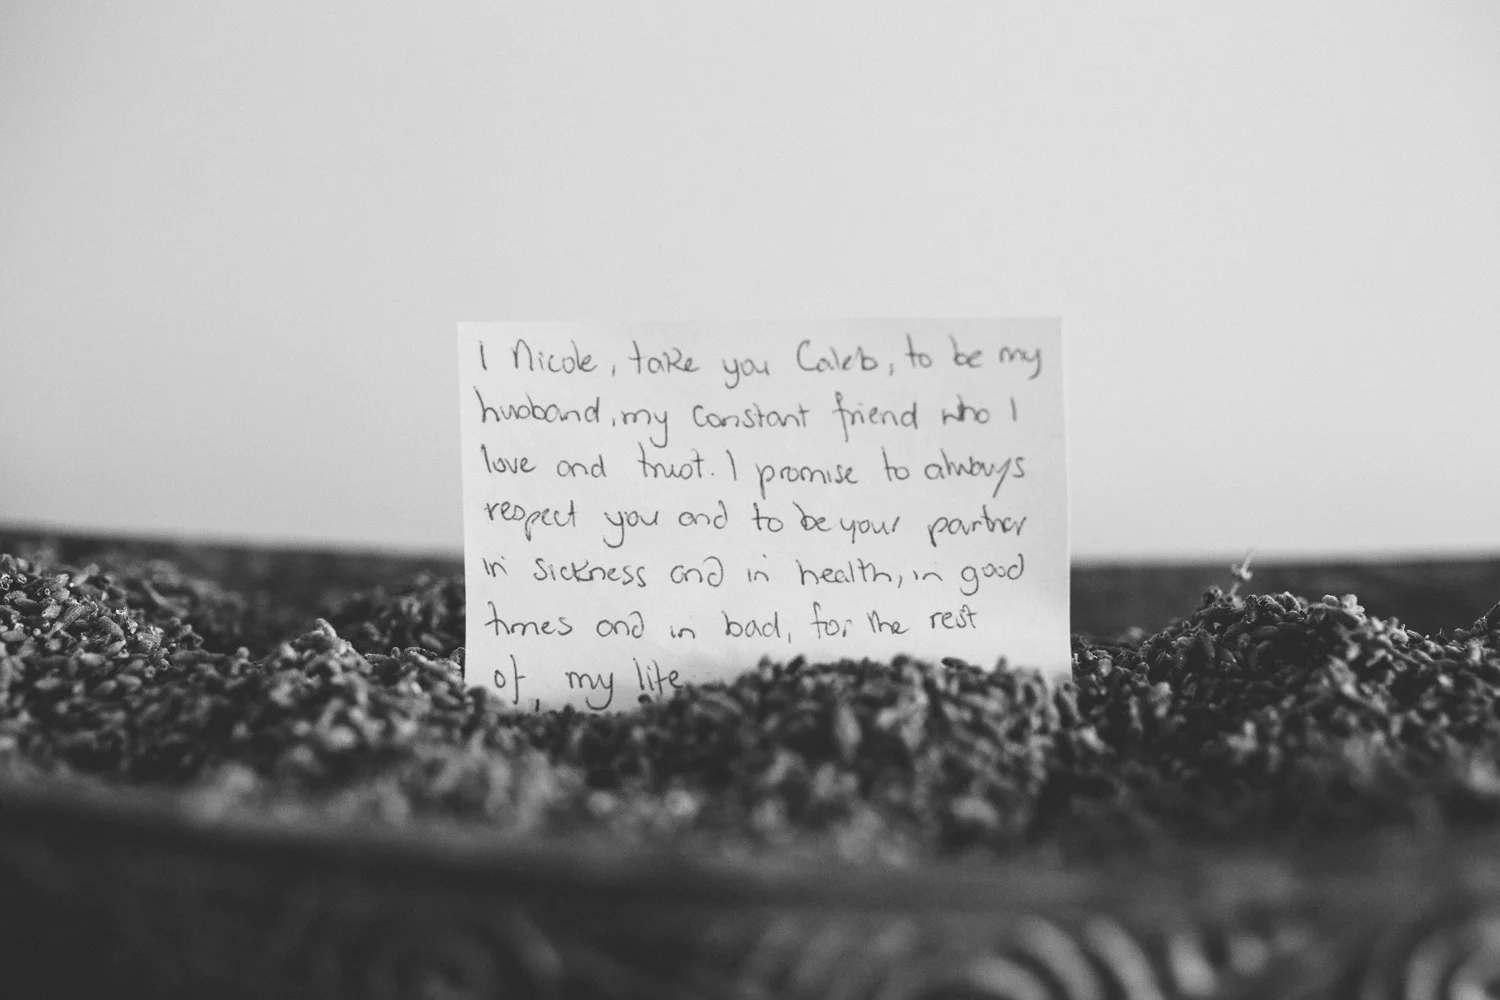 I Nicole, take you Caleb, to be my
husband, my constant friend who I
love and trust. I promise to always
respect you and to be your partner
in sickness and in health, in good
times and in bad, for the rest
of my life